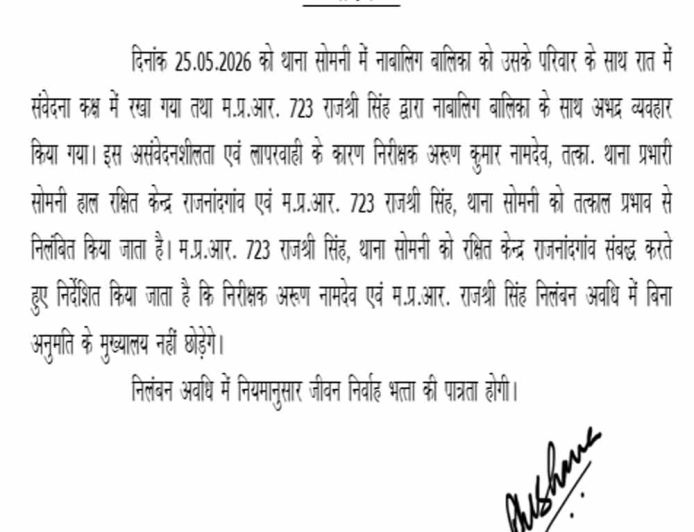 दिनांक 25.05.2026 को थाना सोमनी में नाबालिग बालिका को उसके परिवार के साथ रात में
संवेदना कक्ष में रखा गया तथा म.प्र.आर. 723 राजश्री सिंह द्वारा नाबालिग बालिका के साथ अभद्र व्यवहार
किया गया। इस असंवेदनशीलता एवं लापरवाही के कारण निरीक्षक अरूण कुमार नामदेव, तत्का. थाना प्रभारी
सोमनी हाल रक्षित केन्द्र राजनांदगांव एवं म.प्र.आर. 723 राजश्री सिंह, थाना सोमनी को तत्काल प्रभाव से
निलंबित किया जाता है। म.प्र.आर. 723 राजश्री सिंह, थाना सोमनी को रक्षित केन्द्र राजनांदगांव संबद्ध करते
हुए निर्देशित किया जाता है कि निरीक्षक अरूण नामदेव एवं म.प्र.आर. राजश्री सिंह निलंबन अवधि में बिना
अनुमति के मुख्यालय नहीं छोड़ेगे।
निलंबन अवधि में नियमानुसार जीवन निर्वाह भत्ता की पात्रता होगी।